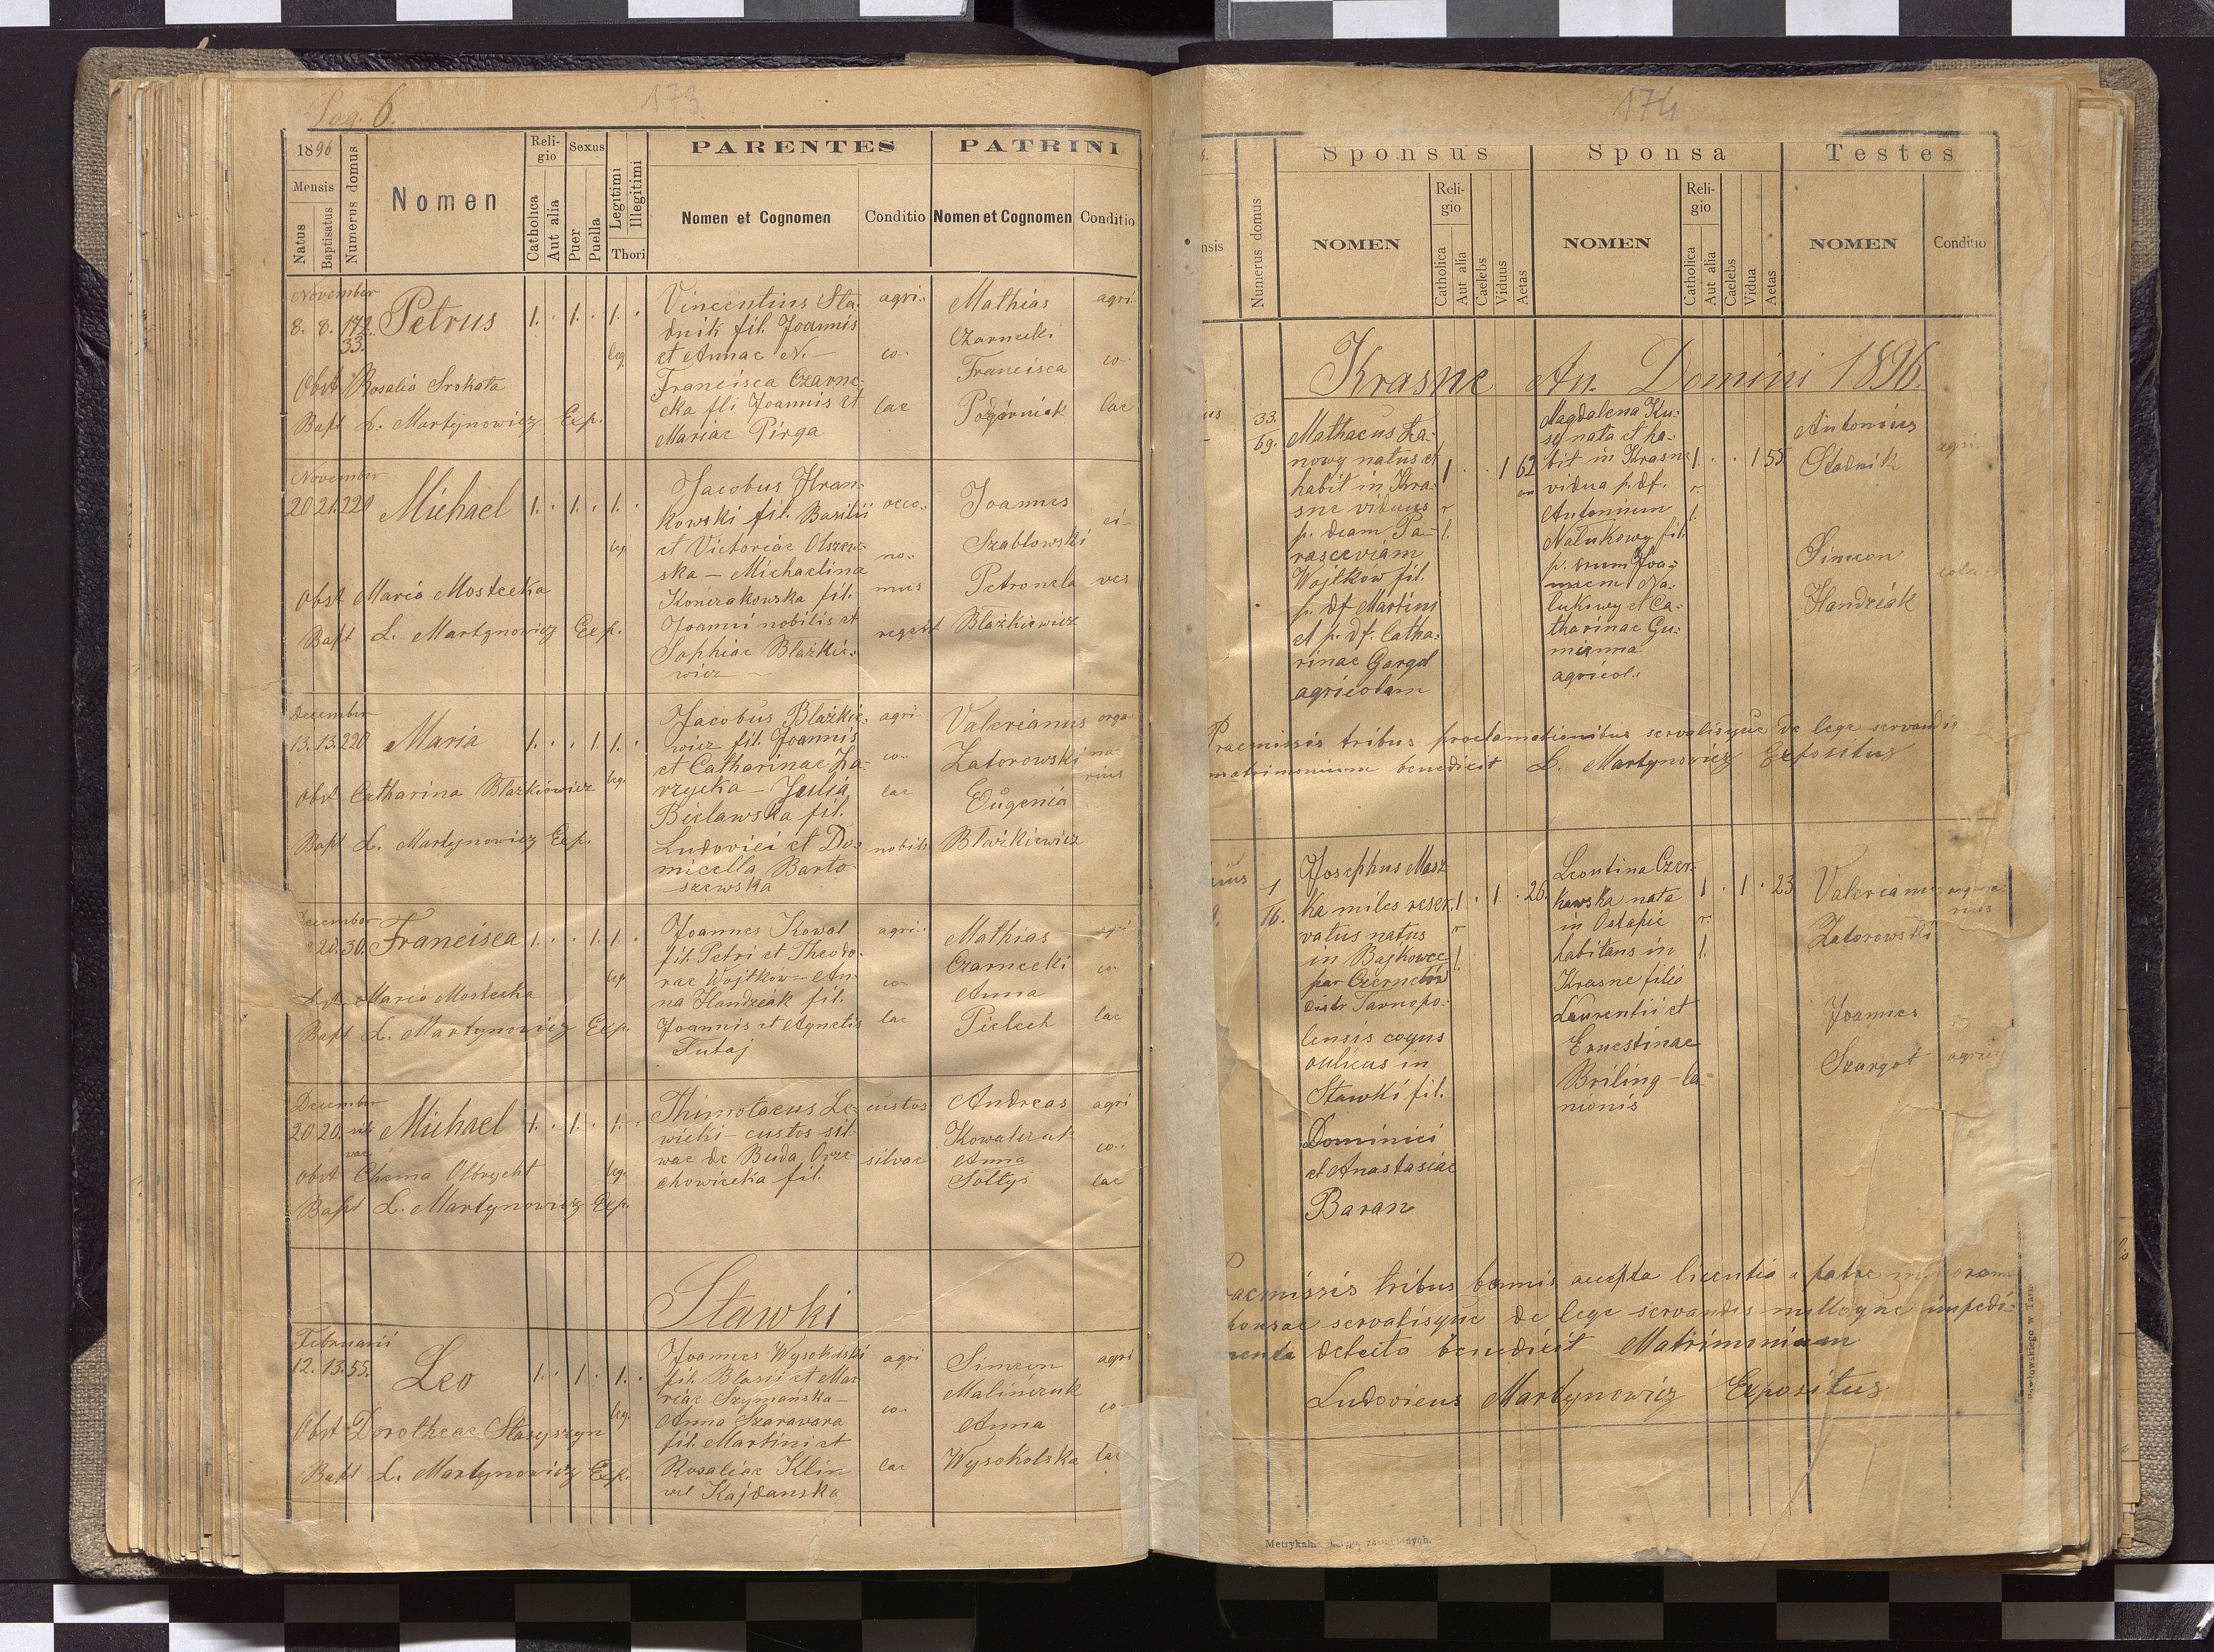 Pag. 6.
173
1896
Mensis
Natus
Baptisatus
Numerus domus
Nomen
Religio
Catholica
Aut alia
Sexus
Puer
Puella
Legitimi
Illegitimi
Thori
PARENTES
Nomen et Cognomen
Conditio
PATRINI
Nomen et Cognomen
Conditio
November
8. 8. 172.
33.
Petrus
1. . 1. . 1. .
leg.
Obst Rosalia Srokata
Bapt L. Martynowicz Exp.
Vincentius Sta-
dnik fil. Joannis
et Annae N. —
Francisca Czarne-
cka fli Joannis et
Mariae Pirga
agri-
co-
lae
Mathias
Czarnecki
Francisca
Pogórniak
agri-
co-
lae
November
20 21. 220
Michael
1. . 1. . 1. .
leg.
Obst Maria Mostecka
Bapt L. Martynowicz Exp.
Jacobus Hran-
kowski fil. Basilii
et Victoriae Olszew-
ska — Michaelina
Kończakowska fil.
Joanni nobilis et
Sophiae Błażkie-
wicz
oeco-
no-
mus
Joannes
Szabłowski
Petronela
Błażkiewicz
ci-
ves
December
13. 13. 220
Maria
1. . . 1. 1. .
leg.
Obst Catharina Błażkiewicz
Bapt L. Martynowicz Exp.
Jacobus Błażkie-
wicz fil. Joannis
et Catharinae Za-
rzycka — Julia
Bielawska fil.
Ludovici et Do-
micella Barto-
szewska
agri-
co-
lae
nobil.
Valerianus
Zatorowski
Eugenia
Błażkiewicz
orga-
na-
rius
December
20. 30.
Francisca
1. . . 1. 1. .
leg.
Obst Maria Mostecka
Bapt L. Martynowicz Exp.
Joannes Kowal
fil. Petri et Theodo-
rae Wojtków — An-
na Handziak fil.
Joannis et Agnetis
Tutaj
agri-
co-
lae
Mathias
Czarnecki
Anna
Pielech
agri
co-
lae
December
20 20.
Michael
1. . 1. . 1. .
leg.
Obst Chama Olbrycht
Bapt L. Martynowicz Exp.
Thimotaeus Le-
wicki — custos sil-
vae de Buda Orze-
chowiecka fil.
custos
silvae
Andreas
Kowalczuk
Anna
Sołtys
agri
co-
lae
Stawki
Februarii
12. 13. 55.
Leo
1. . 1 . 1. .
leg.
Obst Dorotheae Stasyszyn
Bapt L. Martynowicz Exp.
Joannes Wysokolski
fil. Blasii et Ma-
riae Szymańska —
Anna Szaravara
fil. Martini et
Rosaliae Klim
vel Kajdanska
agri
co-
lae
Simeon
Malińczuk
Anna
Wysokolska
agri
co-
lae
174
Numerus domus
Sponsus
NOMEN
Religio
Catholica
Aut alia
Caelebs
Viduus
Aetas
Sponsa
NOMEN
Religio
Catholica
Aut alia
Caelebs
Vidua
Aetas
Testes
NOMEN
Conditio
Krasne An. Domini 1896.
33.
69.
Mathaeus Ła-
nowy natus et
habit in Kra-
sne viduus
p. deam Pa-
rasceviam
Wojtków fil.
p. df Martini
et p. df. Catha-
rinae Gargol
agricolam
1 . . 1 62
r
l.
Magdalena Ku-
sy nata et ha-
bit in Krasne
vidua p. df.
Antonium
Nalukowy fil.
p. drum Joa-
nnem Na-
lukowy et Ca-
tharinae Gu-
mienna
agricol.
1. . . 1 55
r.
l.
Antonius
Stadnik
Simeon
Handziak
agri-
cola
Praemissis tribus proclamationibus servatisque de lege servandis
matrimonium benedixit L. Martynowicz Expositus
1
16.
Josephus Masz-
ka miles reser-
vatus natus
in Bajkowce
par Czernelów
distr Tarnopo-
lensis coquus
aulicus in
Stawki fil.
Dominici
et Anastasiae
Baran
1 . 1 . 26.
r
l.
Leontina Czer-
kawska nata
in Ostapie
habitans in
Krasne filia
Laurentii et
Ernestinae
Briling — la-
nionis
1 . 1 . 23
r.
l.
Valerianus
Zatorowski
Joannes
Szargot
organa-
rius
agricol
Praemissis tribus bannis accepta licentia a patre minorem
sponsae servatisque de lege servandis nulloque impedi-
mento detecto benedixit Matrimonium
Ludovicus Martynowicz Expositus